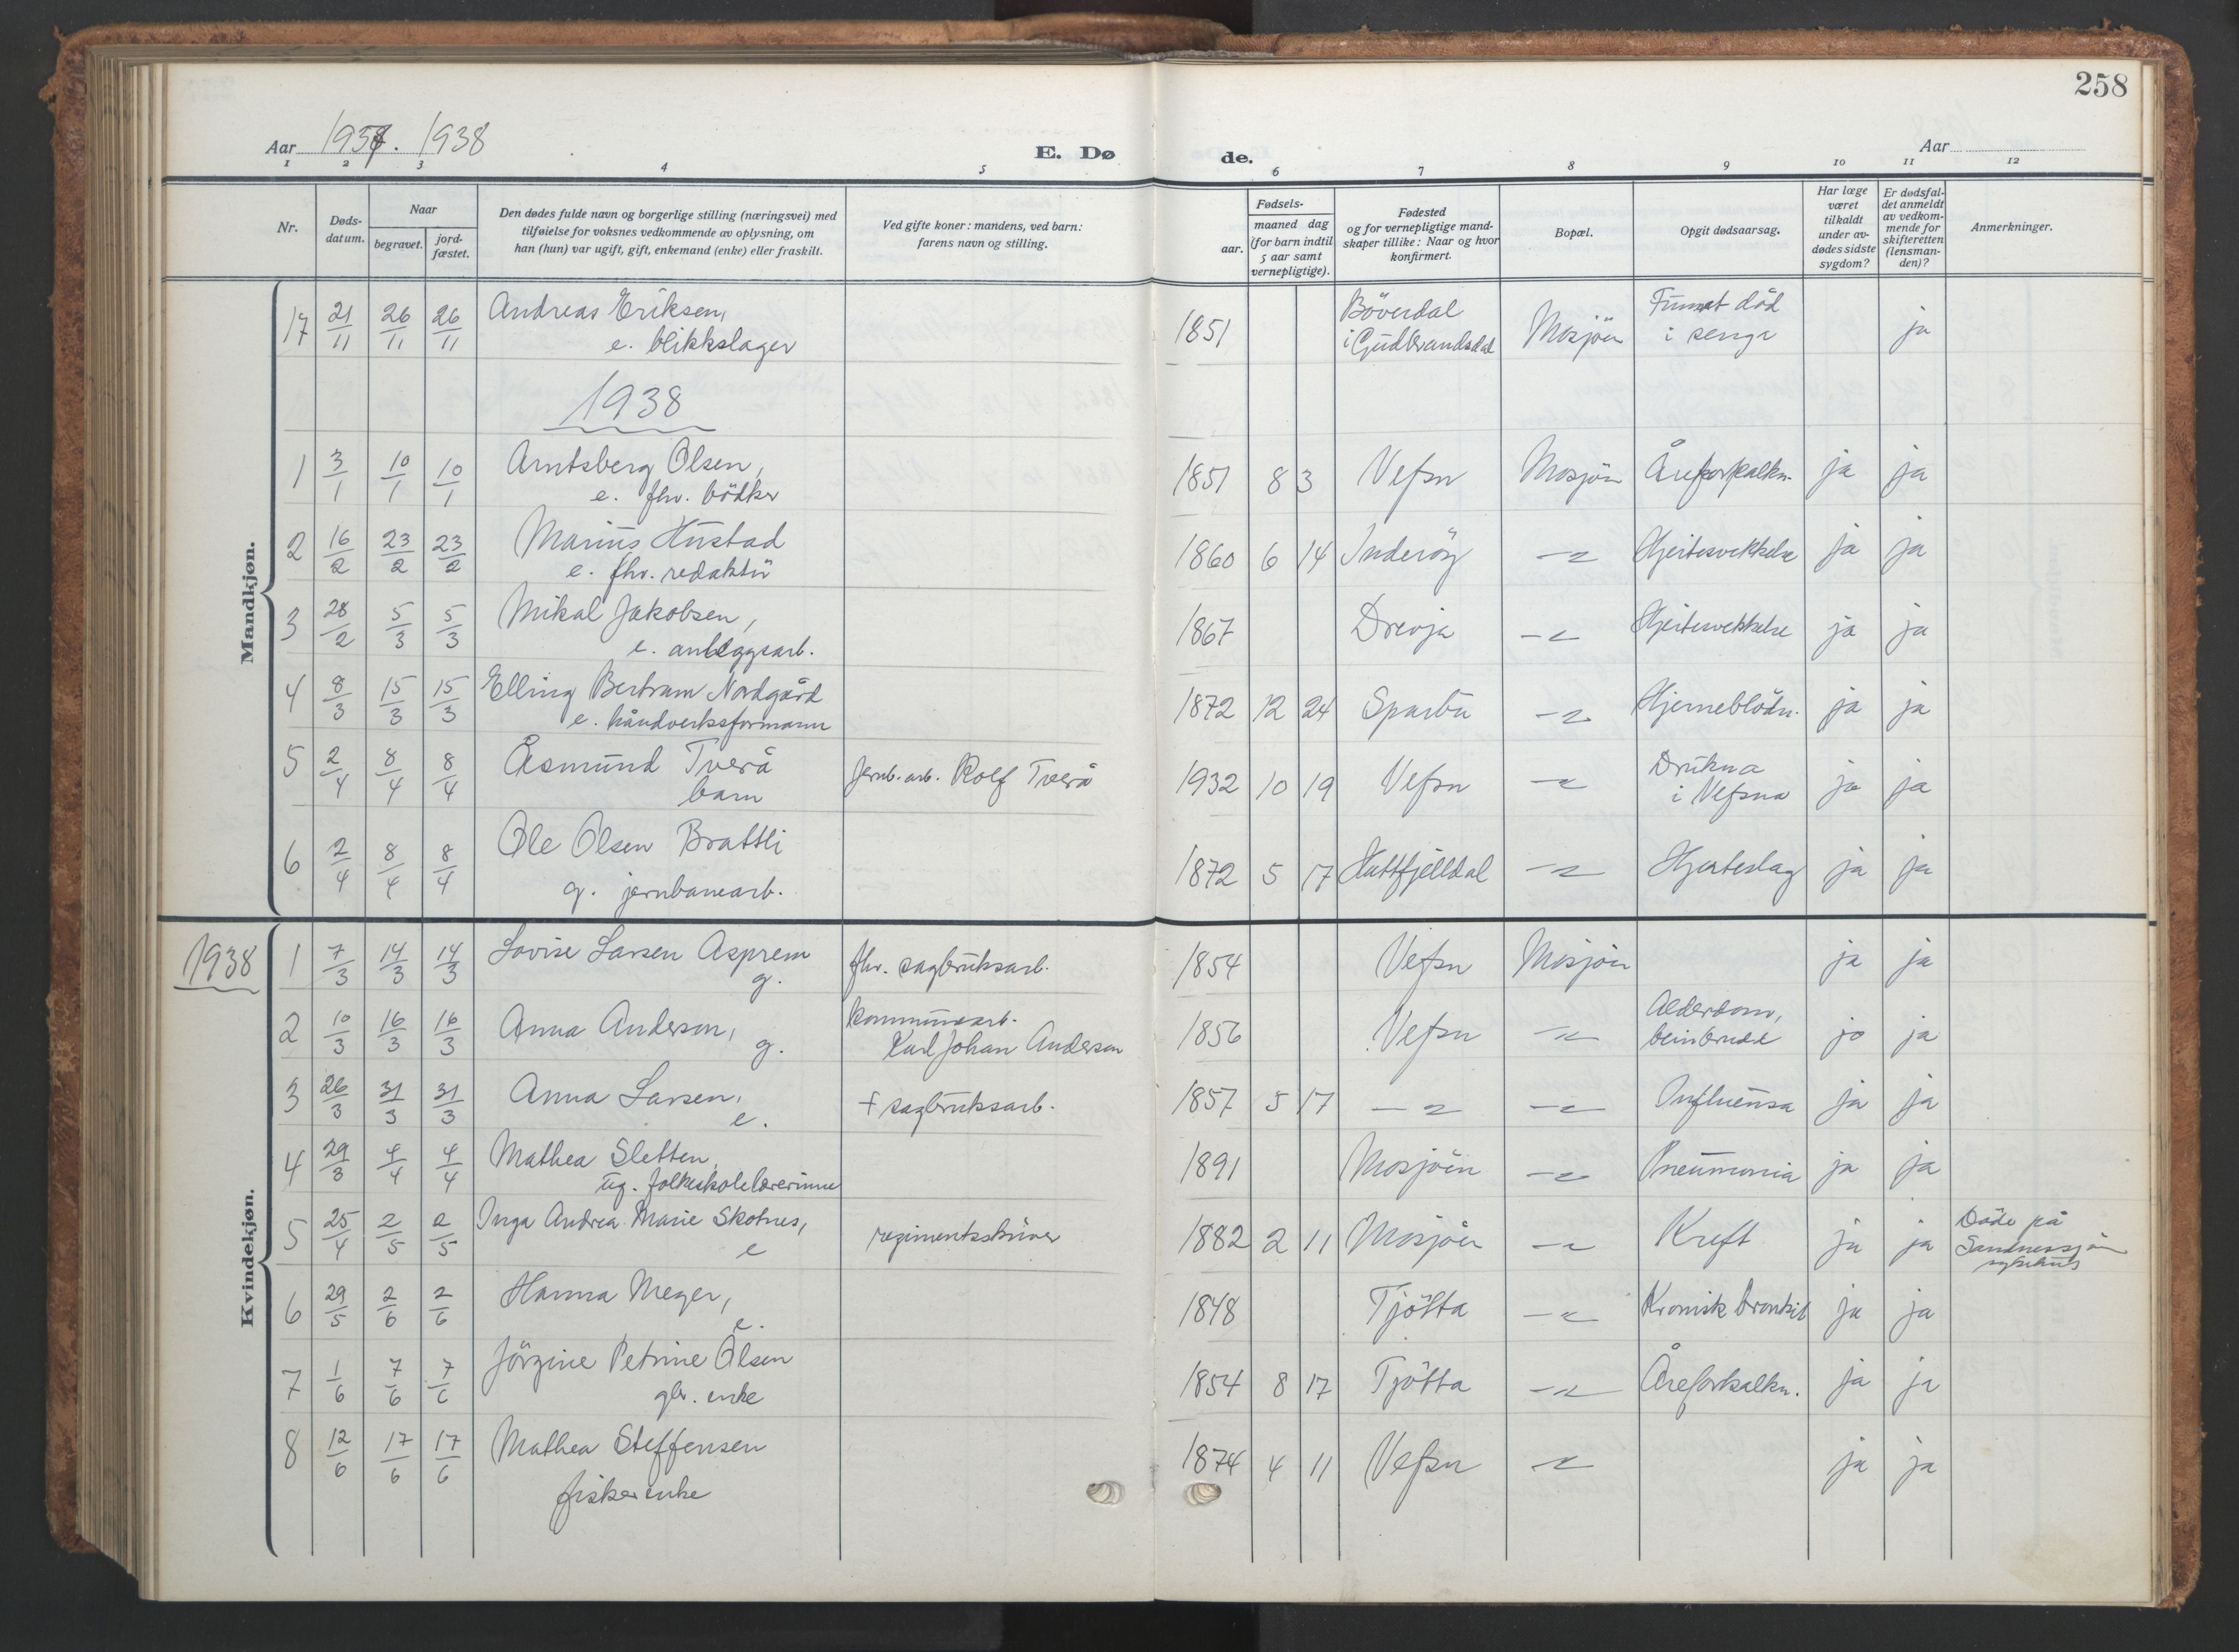 258
Aar 1937. 1938
E. Dø
de.
Aar
1 2 3 4 5 6 7 8 9 10 11 12
Nr.
Døds-
datum.
Naar
begravet.
jord-
fæstet.
Den dødes fulde navn og borgerlige stilling (næringsvei) med
tilføielse for voksnes vedkommende av oplysning, om
han (hun) var ugift, gift, enkemand (enke) eller fraskilt.
Ved gifte koner: mandens, ved barn:
farens navn og stilling.
Fødsels-
aar.
maaned dag
(for barn indtil
5 aar samt
vernepligtige).
Fødested
og for vernepligtige mand-
skaper tillike: Naar og hvor
konfirmert.
Bopæl.
Opgit dødsaarsag.
Har læge
været
tilkaldt
under av-
dødes sidste
sygdom?
Er dødsfal-
det anmeldt
av vedkom-
mende for
skifteretten
(lensman-
den)?
Anmerkninger.
Mandkjøn.
17 21/11 26/11 26/11 Andreas Eriksen, 1851 Böverdal Mosjöen Funnet död ja
e. blikkslager i Gudbrandsdal i senga
1938
1 3/1 10/1 10/1 Arntsberg Olsen, 1851 8 3 Vefsn Mosjöen Åreforkalkn. ja ja
e. fhv. bödker
2 16/2 23/2 23/2 Marius Hustad 1860 6 14 Inderöy -"- Hjertesvekkelse ja ja
e. fhv. redaktör
3 28/2 5/3 5/3 Mikal Jakobsen, 1867 Drevja -"- Hjertesvekkelse ja ja
e. anleggsarb.
4 8/3 15/3 15/3 Elling Bertram Nordgård 1872 12 24 Sparbu -"- Hjerneblödn. ja ja
e. håndverksformann
5 2/4 8/4 8/4 Åsmund Tverå jernb. arb. Rolf Tverå 1932 10 19 Vefsn -"- Drukna ja ja
barn i Vefsna
6 2/4 8/4 8/4 Ole Olsen Brattli 1872 5 17 Hattfjelldal -"- Hjerteslag ja ja
g. jernbanearb.
Kvindekjøn.
1938
1 7/3 14/3 14/3 Lovise Larsen Asprem fhv. sagbruksarb. 1854 Vefsn Mosjöen ja ja
g.
2 10/3 16/3 16/3 Anna Anderson, g. kommunearb. 1856 Vefsn -"- Alderdom, jo ja
Karl Johan Anderson beinbrudd
3 26/3 31/3 31/3 Anna Larsen, + sagbruksarb. 1857 5 17 -"- -"- Influensa ja ja
e.
4 29/3 4/4 4/4 Mathea Sletten, 1891 Mosjöen -"- Pneumonia ja ja
ug. folkeskolelærerinne
5 25/4 2/5 2/5 Inga Andrea Marie Skotnes, regimentsskriver 1882 2 11 Mosjöen -"- Kreft ja ja Döde på
e Sandnessjöen
sykehus
6 29/5 2/6 2/6 Hanna Meyer, 1848 Tjötta -"- Kronisk bronkit ja ja
e.
7 1/6 7/6 7/6 Jörgine Petrine Olsen 1854 8 17 Tjötta -"- Åreforkalkn. ja ja
gbr. enke
8 12/6 17/6 17/6 Mathea Steffensen 1874 4 11 Vefsn -"- ja ja
fiskerenke